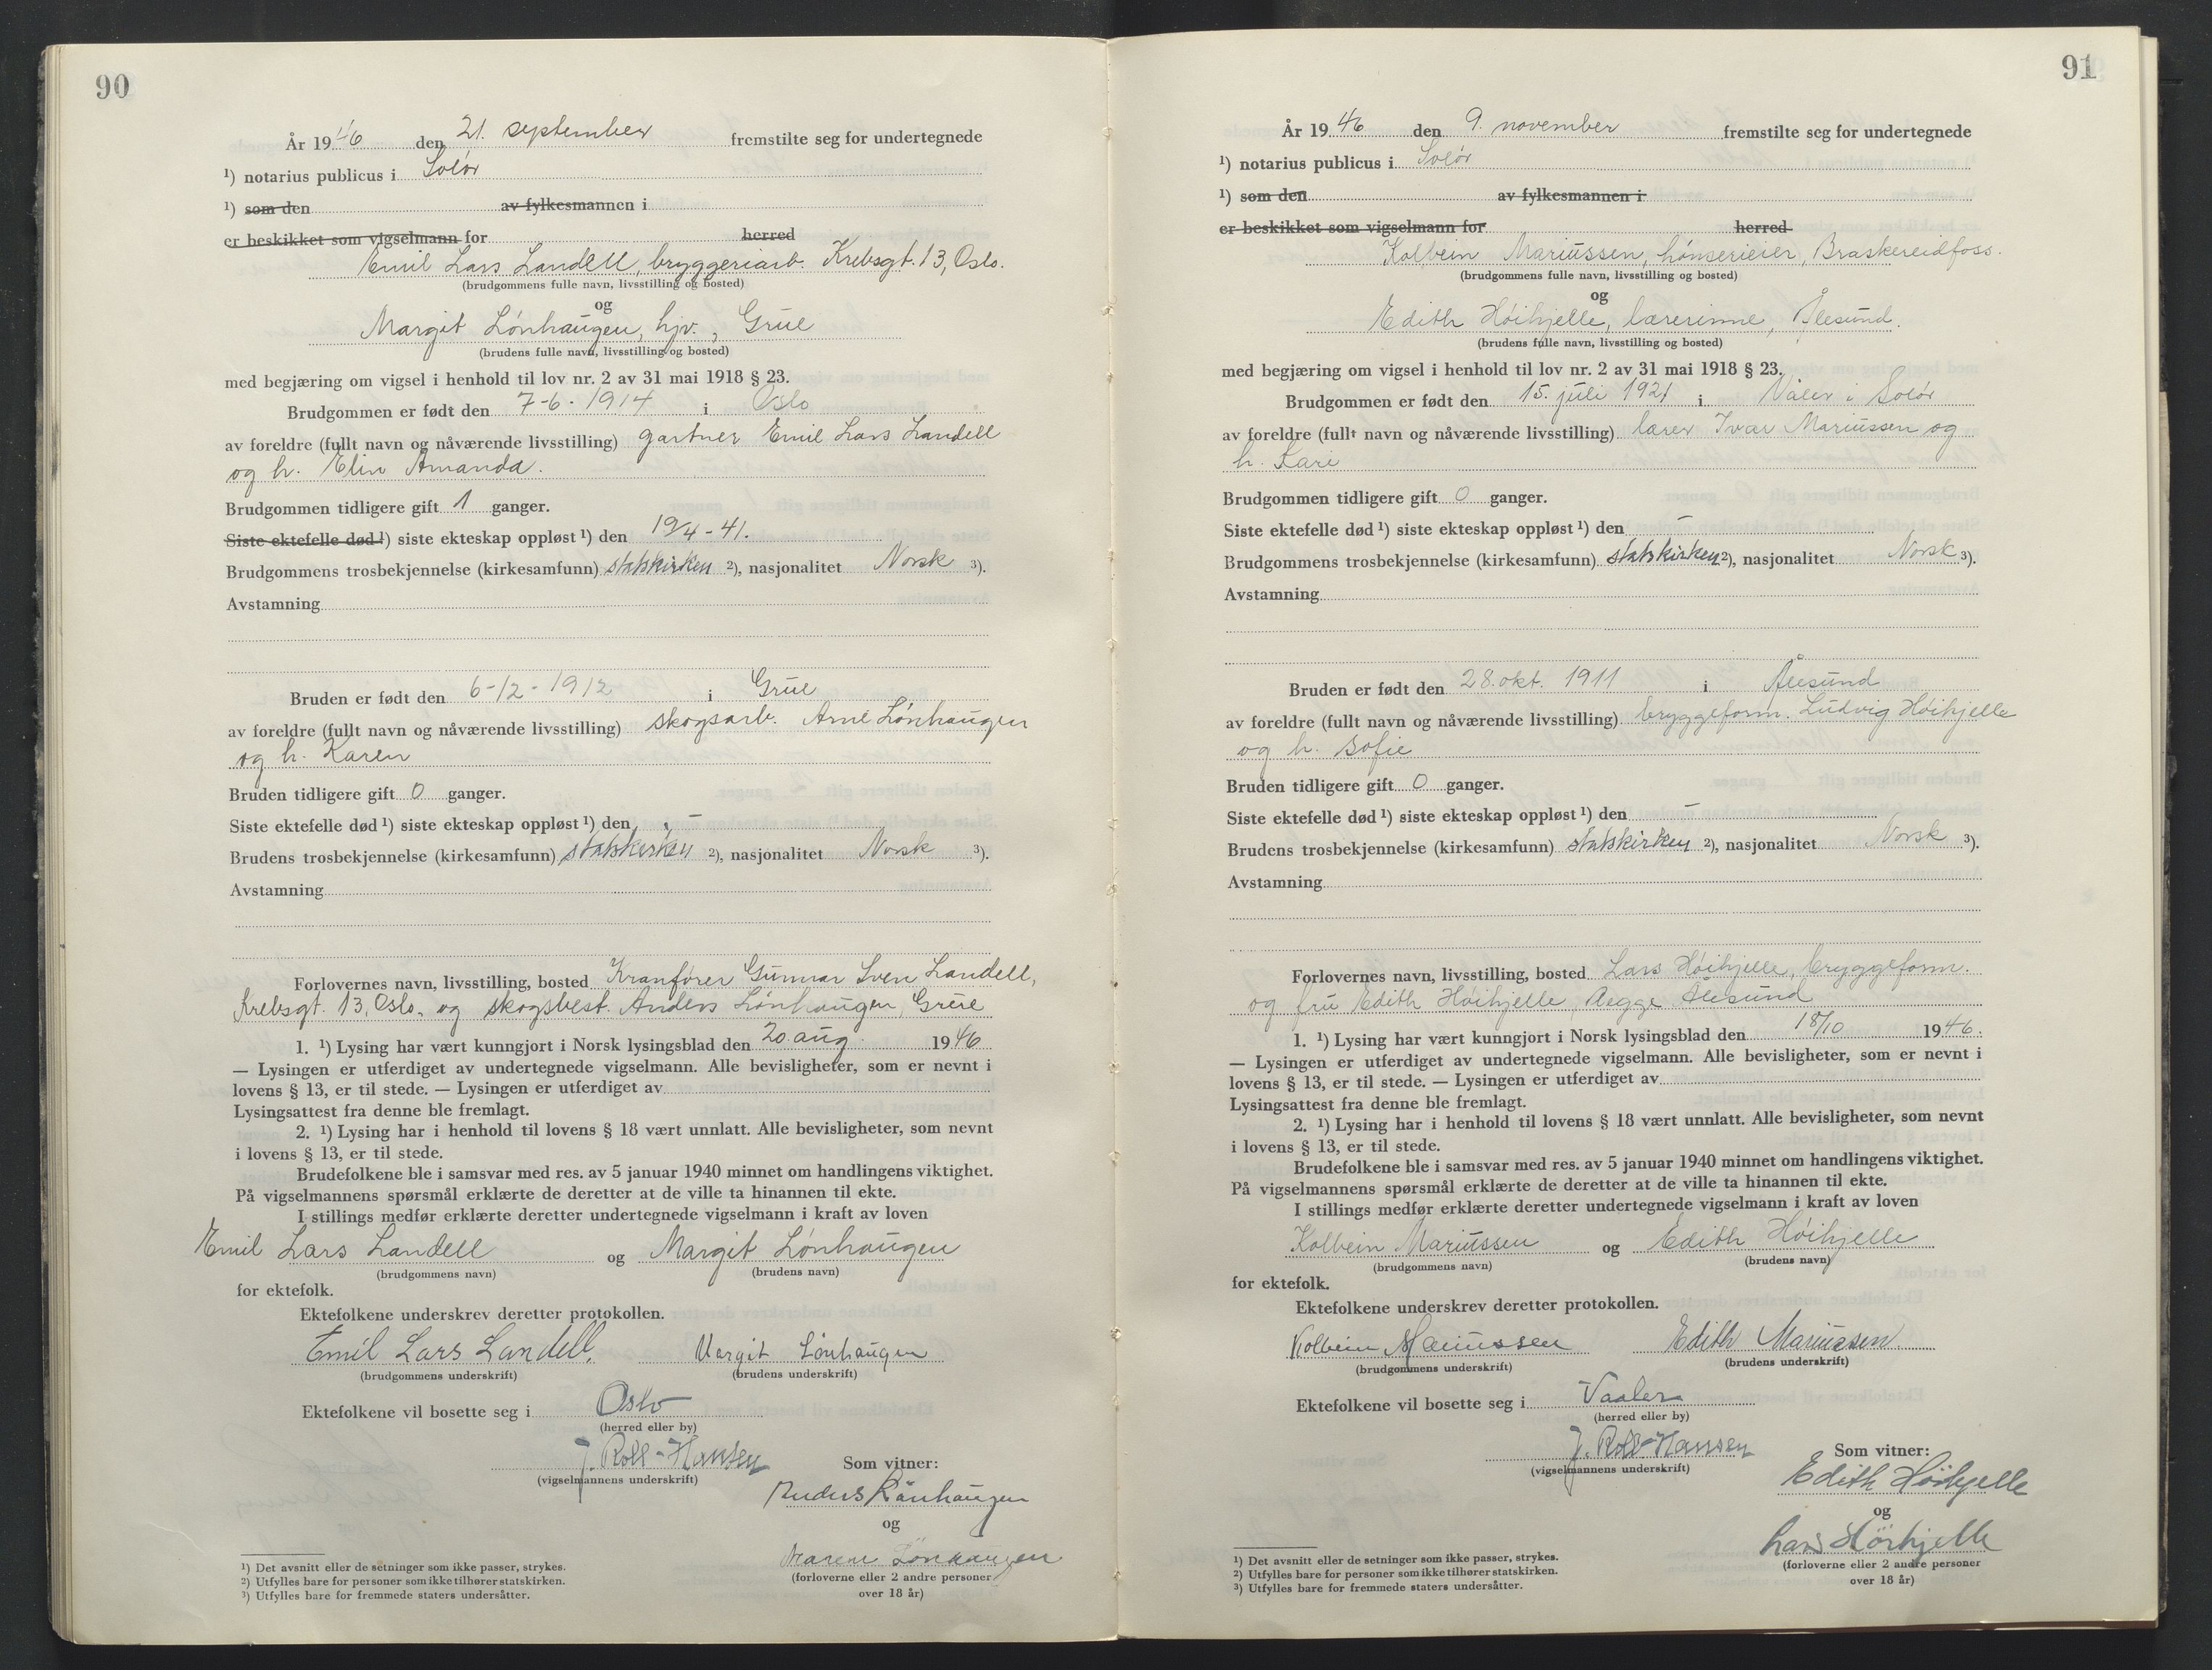 90
År 1946 den 21. september fremstilte seg for undertegnede
¹) notarius publicus i Solør
¹) som den av fylkesmannen i
er beskikket som vigselmann for herred
Emil Lars Landell, bryggeriarb. Krebsgt. 13, Oslo.
(brudgommens fulle navn, livsstilling og bosted)
og
Margit Lønhaugen, hjv., Grue
(brudens fulle navn, livsstilling og bosted)
med begjæring om vigsel i henhold til lov nr. 2 av 31 mai 1918 § 23.
Brudgommen er født den 7-6-1914 i Oslo
av foreldre (fullt navn og nåværende livsstilling) gartner Emil Lars Landell
og h. Elin Amanda.
Brudgommen tidligere gift 1 ganger.
Siste ektefelle død ¹) siste ekteskap oppløst ¹) den 19/4-41.
Brudgommens trosbekjennelse (kirkesamfunn) statskirken ²), nasjonalitet Norsk ³).
Avstamning
Bruden er født den 6-12-1912 i Grue
av foreldre (fullt navn og nåværende livsstilling) skogsarb. Arne Lønhaugen
og h. Karen
Bruden tidligere gift 0 ganger.
Siste ektefelle død ¹) siste ekteskap oppløst ¹) den –
Brudens trosbekjennelse (kirkesamfunn) statskirken ²), nasjonalitet Norsk ³).
Avstamning
Forlovernes navn, livsstilling, bosted Kranfører Gunnar Sven Landell,
Krebsgt. 13, Oslo, og skogsbest. Anders Lønhaugen, Grue
1. ¹) Lysing har vært kunngjort i Norsk lysingsblad den 20. aug. 1946
— Lysingen er utferdiget av undertegnede vigselmann. Alle bevisligheter, som er nevnt i
lovens § 13, er til stede. — Lysingen er utferdiget av
Lysingsattest fra denne ble fremlagt.
2. ¹) Lysing har i henhold til lovens § 18 vært unnlatt. Alle bevisligheter, som nevnt
i lovens § 13, er til stede.
Brudefolkene ble i samsvar med res. av 5 januar 1940 minnet om handlingens viktighet.
På vigselmannens spørsmål erklærte de deretter at de ville ta hinannen til ekte.
I stillings medfør erklærte deretter undertegnede vigselmann i kraft av loven
Emil Lars Landell og Margit Lønhaugen
(brudgommens navn) (brudens navn)
for ektefolk.
Ektefolkene underskrev deretter protokollen.
Emil Lars Landell. Margit Lønhaugen
(brudgommens underskrift) (brudens underskrift)
Ektefolkene vil bosette seg i Oslo
(herred eller by)
J. Roll-Hansen
(vigselmannens underskrift)
Som vitner:
Anders Lönhaugen
og
Karen Lønhaugen
(forloverne eller 2 andre personer
over 18 år)
¹) Det avsnitt eller de setninger som ikke passer, strykes.
²) Utfylles bare for personer som ikke tilhører statskirken.
³) Utfylles bare for fremmede staters undersåtter.
91
År 1946 den 9. november fremstilte seg for undertegnede
¹) notarius publicus i Solør
¹) som den av fylkesmannen i
er beskikket som vigselmann for herred
Kolbein Mariussen, hønserieier, Braskereidfoss.
(brudgommens fulle navn, livsstilling og bosted)
og
Edith Høihjelle, lærerinne, Ålesund.
(brudens fulle navn, livsstilling og bosted)
med begjæring om vigsel i henhold til lov nr. 2 av 31 mai 1918 § 23.
Brudgommen er født den 15. juli 1921 i Våler i Solør
av foreldre (fullt navn og nåværende livsstilling) lærer Ivar Mariussen og
h. Kari
Brudgommen tidligere gift 0 ganger.
Siste ektefelle død ¹) siste ekteskap oppløst ¹) den –
Brudgommens trosbekjennelse (kirkesamfunn) statskirken ²), nasjonalitet Norsk ³).
Avstamning
Bruden er født den 28. okt. 1911 i Ålesund
av foreldre (fullt navn og nåværende livsstilling) bryggeform. Ludvig Høihjelle
og h. Sofie
Bruden tidligere gift 0 ganger.
Siste ektefelle død ¹) siste ekteskap oppløst ¹) den –
Brudens trosbekjennelse (kirkesamfunn) statskirken ²), nasjonalitet Norsk ³).
Avstamning
Forlovernes navn, livsstilling, bosted Lars Høihjelle, bryggeform.
og fru Edith Høihjelle, begge Ålesund
1. ¹) Lysing har vært kunngjort i Norsk lysingsblad den 18/10 1946.
— Lysingen er utferdiget av undertegnede vigselmann. Alle bevisligheter, som er nevnt i
lovens § 13, er til stede. — Lysingen er utferdiget av
Lysingsattest fra denne ble fremlagt.
2. ¹) Lysing har i henhold til lovens § 18 vært unnlatt. Alle bevisligheter, som nevnt
i lovens § 13, er til stede.
Brudefolkene ble i samsvar med res. av 5 januar 1940 minnet om handlingens viktighet.
På vigselmannens spørsmål erklærte de deretter at de ville ta hinannen til ekte.
I stillings medfør erklærte deretter undertegnede vigselmann i kraft av loven
Kolbein Mariussen og Edith Høihjelle
(brudgommens navn) (brudens navn)
for ektefolk.
Ektefolkene underskrev deretter protokollen.
Kolbein Mariussen Edith Mariussen.
(brudgommens underskrift) (brudens underskrift)
Ektefolkene vil bosette seg i Vaaler
(herred eller by)
J. Roll-Hansen
(vigselmannens underskrift)
Som vitner:
Edith Höihjelle
og
Lars Höihjelle
(forloverne eller 2 andre personer
over 18 år)
¹) Det avsnitt eller de setninger som ikke passer, strykes.
²) Utfylles bare for personer som ikke tilhører statskirken.
³) Utfylles bare for fremmede staters undersåtter.